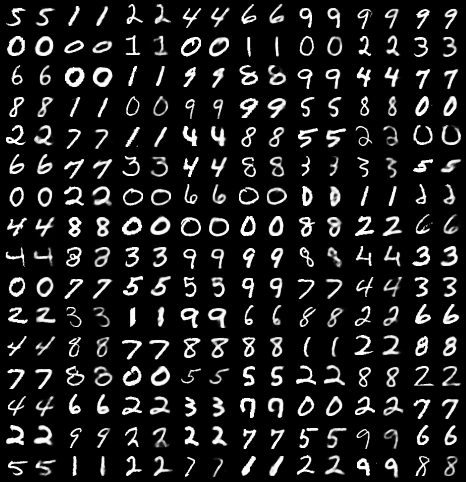 5 5 1 1 2 2 4 4 6 6 9 9 9 9 9 9
0 0 0 0 1 1 0 0 1 1 0 0 2 2 3 3
6 6 0 0 1 1 9 9 8 8 9 9 4 4 7 7
8 8 1 1 0 0 9 9 9 9 5 5 8 8 0 0
2 2 7 7 1 1 4 4 8 8 5 5 2 2 0 0
6 6 7 7 3 3 4 4 8 8 3 3 3 3 5 5
0 0 2 2 0 0 6 6 0 0 0 0 1 1 2 2
4 4 8 8 0 0 0 0 0 0 8 8 2 2 6 6
4 4 8 8 3 3 9 9 9 9 8 8 4 4 3 3
0 0 7 7 5 5 5 5 9 9 7 7 4 4 3 3
2 2 3 3 1 1 9 9 6 6 8 8 2 2 6 6
4 4 8 8 7 7 8 8 8 8 1 1 2 2 8 8
7 7 8 8 0 0 5 5 5 5 2 2 8 8 2 2
4 4 6 6 2 2 3 3 7 7 0 0 2 2 7 7
2 2 9 9 2 2 2 2 7 7 5 5 9 9 6 6
5 5 1 1 2 2 7 7 1 1 2 2 9 9 8 8